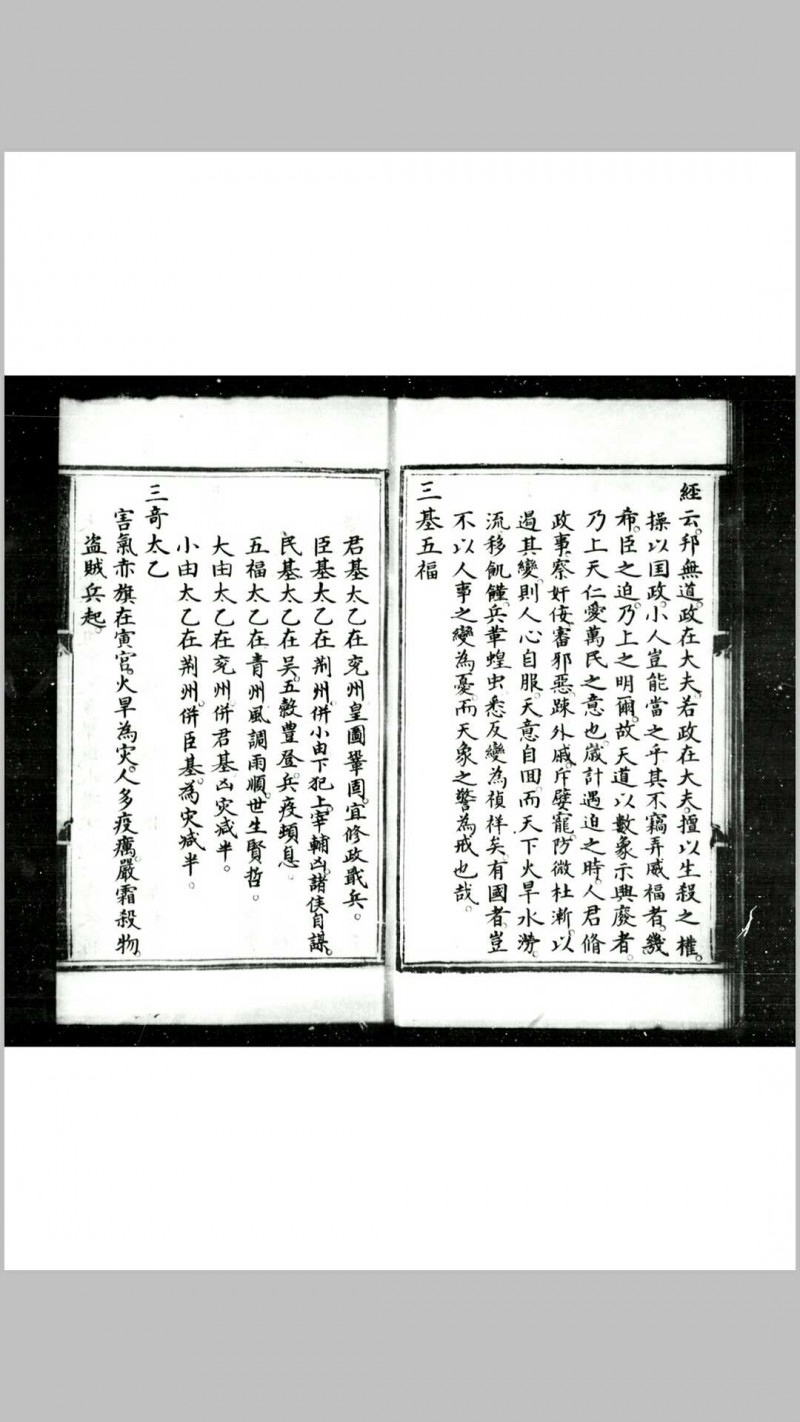 經云。邦無道。政在大夫。若政在大夫。擅以生殺之權。
操以国政。小人豈能當之乎其不竊弄威福者。幾
希。臣之迫。乃上之明爾。故天道以數象示興廢者。
乃上天仁愛萬民之意也。歲計遇迫之時。人君脩
政事。察奸侫。審邪惡。踈外戚。斥嬖寵。防微杜漸。以
遏其變。則人心自服。天意自囬。而天下火旱水澇。
流移飢饉。兵革蝗虫。悉反變為禎祥矣。有國者。豈
不以人事之變為憂。而天象之警為戒也哉。
三基五福
君基太乙在兖州皇圖鞏固。宜修政戢兵。
臣基太乙在荆州。併小由下犯上。宰輔凶。諸侯自謀。
民基太乙在吴。五穀豊登。兵疫頓息。
五福太乙在青州風調雨順。世生賢哲。
大由太乙在兖州併君基凶灾减半。
小由太乙在荆州。併臣基。為灾减半。
三奇太乙
害氣赤旗在寅宮。火旱為灾。人多疫癘。嚴霜殺物。
盗賊兵起。